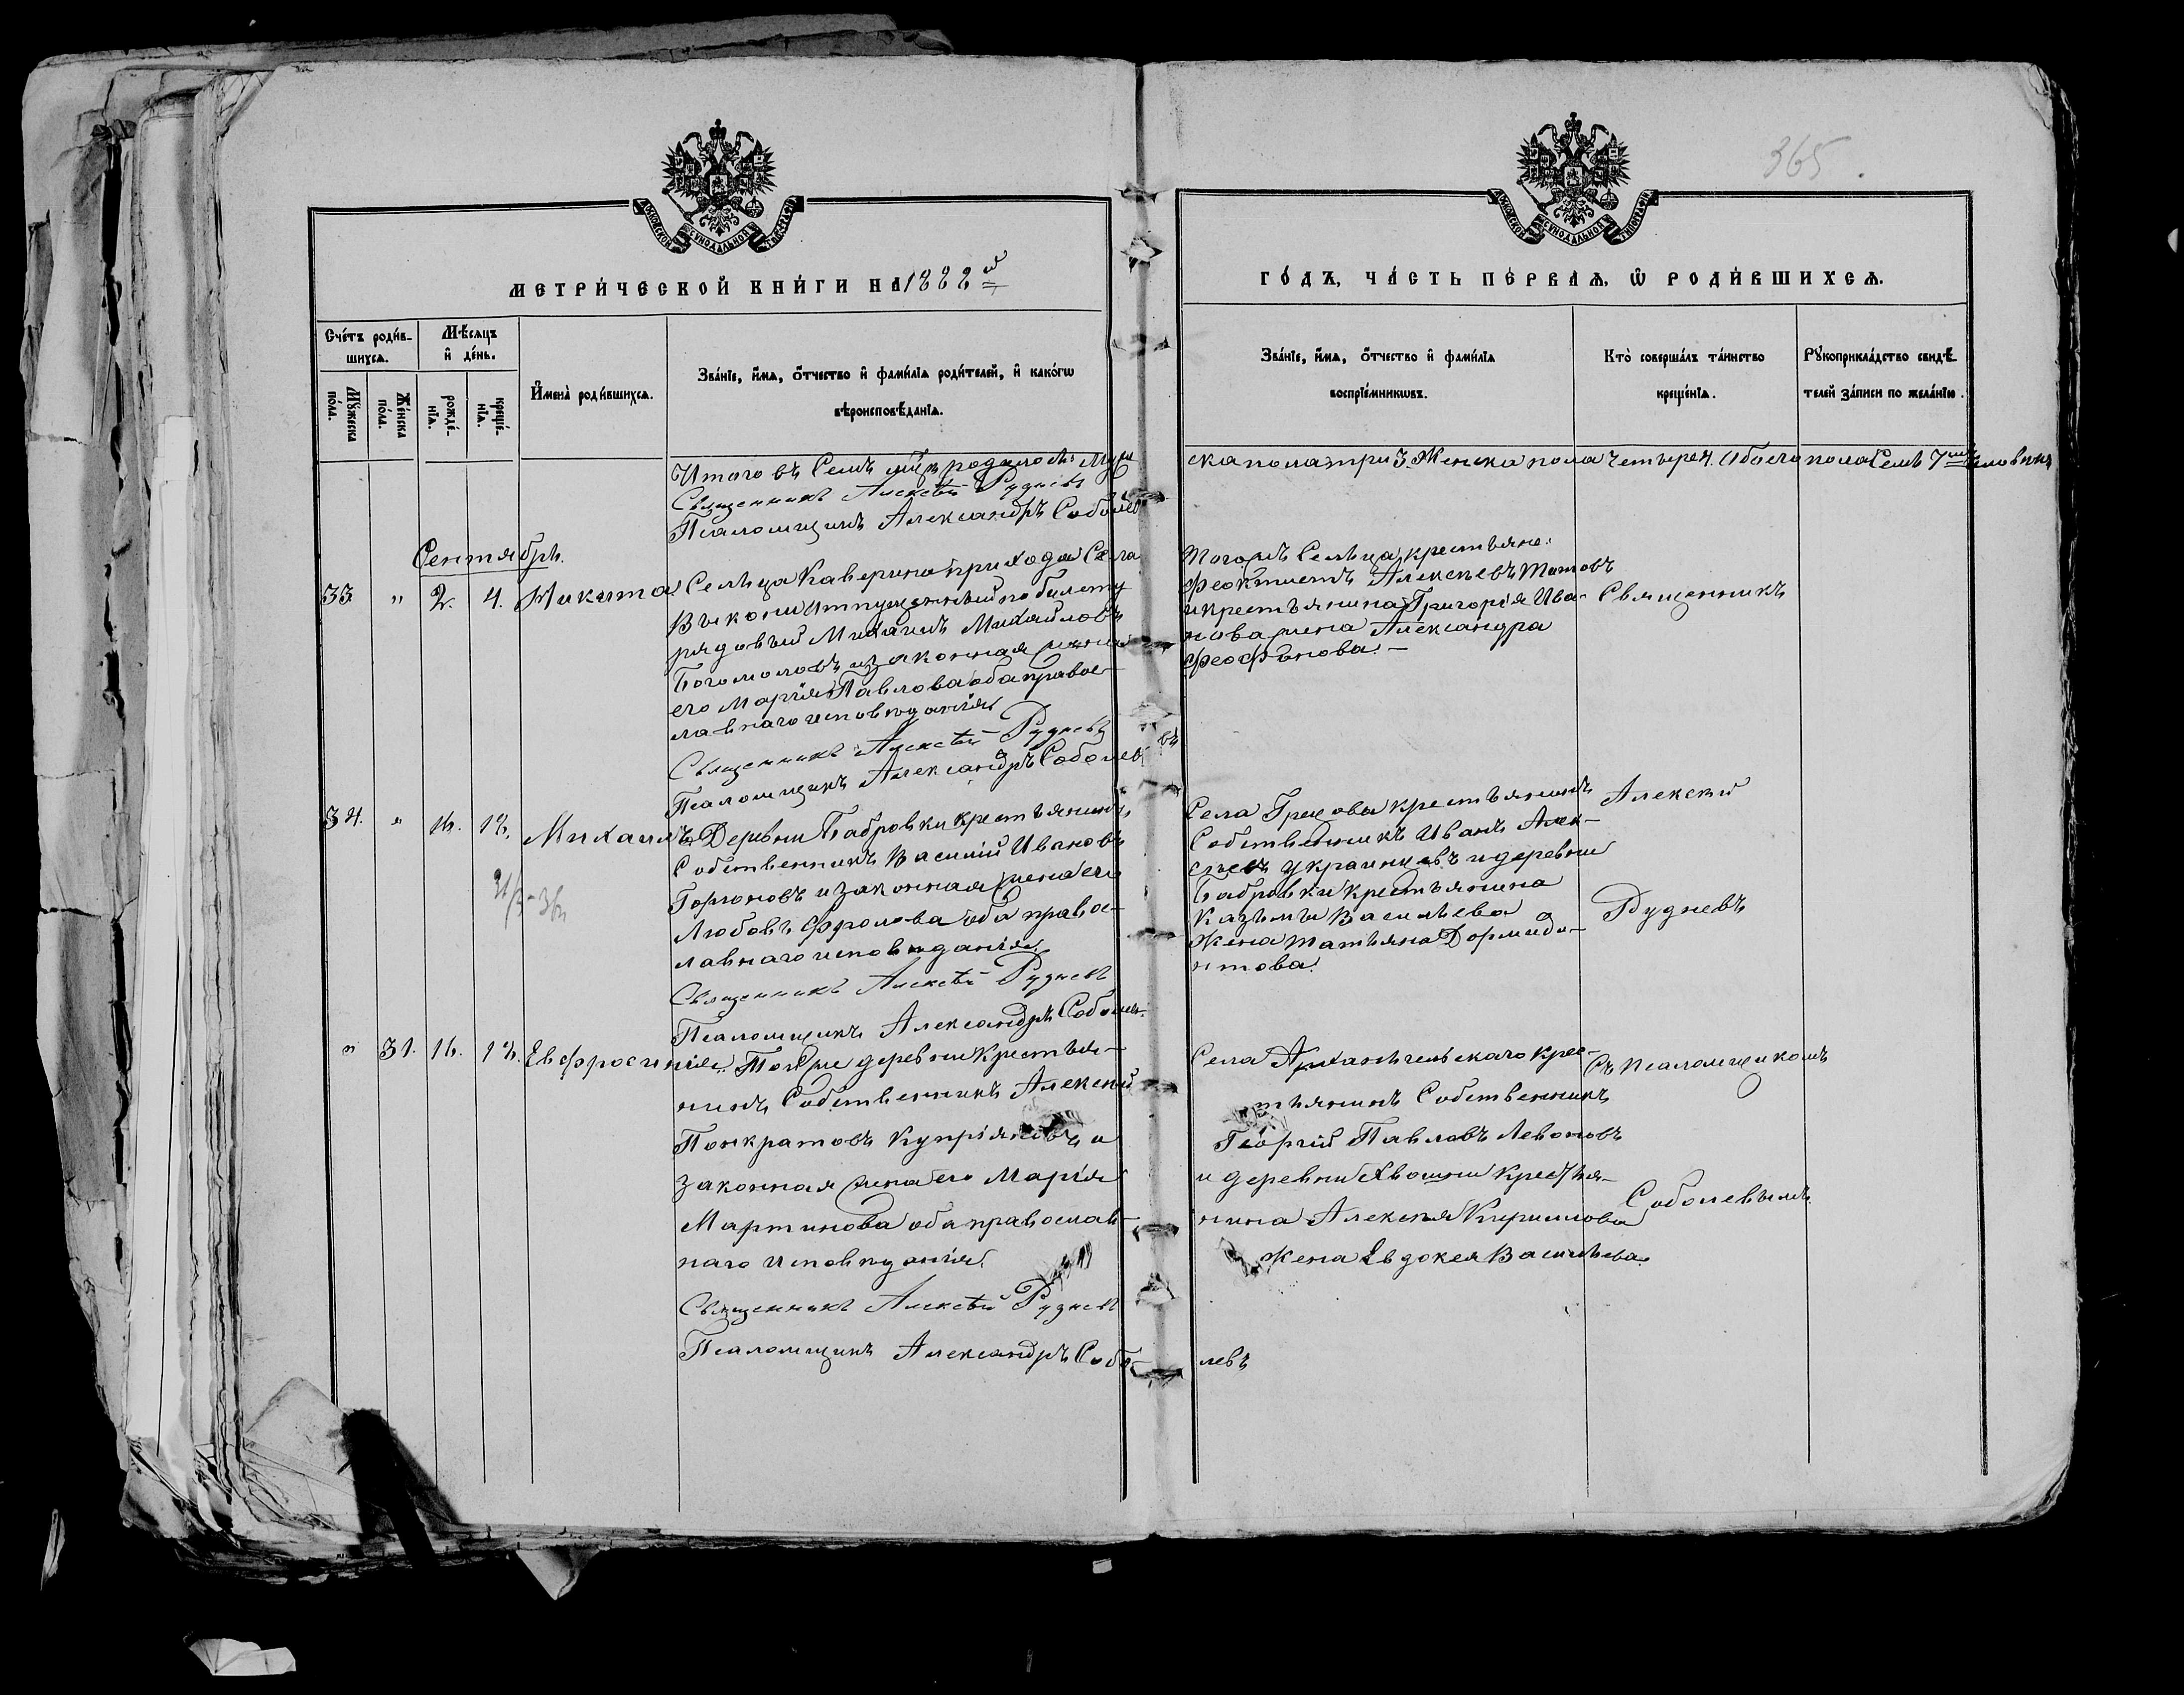 365.
МОСКОВСКОЙ СѴНОДАЛЬНОЙ ТѴПОГРАФІИ
МОСКОВСКОЙ СѴНОДАЛЬНОЙ ТѴПОГРАФІИ
МЕТРИ́ЧЕСКОЙ КНИ́ГИ НА 1882 й
ГО́ДЪ, ЧА́СТЬ ПЕ́РВАѦ, Ѽ РОДИ́ВШИХСѦ.
Сче́тъ роди́в-
шихсѧ.
Мꙋ́жеска по́ла.
Же́нска по́ла.
Мѣ́сѧцъ
и҆ де́нь.
рожде́-
нїѧ.
креще́-
нїѧ.
И҆мена̀ роди́вшихсѧ.
Зва́нїе, и҆́мѧ, ѻ҆́тчество и҆ фами́лїѧ роди́телей, и҆ како́гѡ
вѣроисповѣ́данїѧ.
Зва́нїе, и҆́мѧ, ѻ҆́тчество и҆ фами́лїѧ
воспрїе́мникѡвъ.
Кто̀ соверша́лъ та́инство
креще́нїѧ.
Рꙋкоприкла́дство свидѣ́-
телей за́писи по жела́нїю.
Итого въ Семъ мцѣ родилось Муж
ска пола три 3. Женска пола четыре 4. Обоего пола Семь 7 Человѣкъ
Священникъ Алексѣй Рудневъ
Псаломщикъ Александръ Соболев
Сентябрь.
33 " 2. 4. Никита
Сельца Каверина прихода Села
Выкони Отпущенный по билету
рядовый Михаилъ Михайловъ
Богомоловъ и законная жена
его Марія Павлова оба правос-
лавнаго исповѣданія
Священникъ Алексѣй Рудневъ
Псаломщикъ Александръ Соболев
въ
Тогожъ Сельца крестьяне:
Феоктистъ Алексѣевъ Титовъ
и крестьянина Григорія Ива-
нова жена Александра
Феофанова. -
Священникъ
34. " 16. 18. Михаилъ
Деревни Бабровки крестьянинъ
Собственникъ Василій Ивановъ
и законная жена его
Любовь Фролова оба правос-
лавнаго исповѣданія
Священникъ Алексѣй Рудневъ
Псаломщикъ Александръ Соболев
Села Грецовы крестьянинъ
Собственникъ Иванъ Алек-
сѣевъ Украинцевъ и деревни
Бабровки крестьянина
Казьмы Васильева
Жена Татьяна Дормидо-
нтова.
Алексѣй
Рудневъ
" 31. 16. 18. Евфросинія
Тойже деревни Крестья-
нинъ Собственникъ Алексѣй
Понкратовъ Купріяновъ и
законная жена его Марія
Мартинова оба православ-
наго исповѣданія
Священникъ Алексѣй Рудневъ
Псаломщикъ Александръ Собо-
левъ
Села Архангельскаго крес-
тьянинъ Собственникъ
Георгій Павловъ Левоновъ
и деревни Хвошни Крестья-
нина Алексѣя Кирилова
Жена Евдокея Васильева.
Съ псаломщикомъ
Соболевымъ